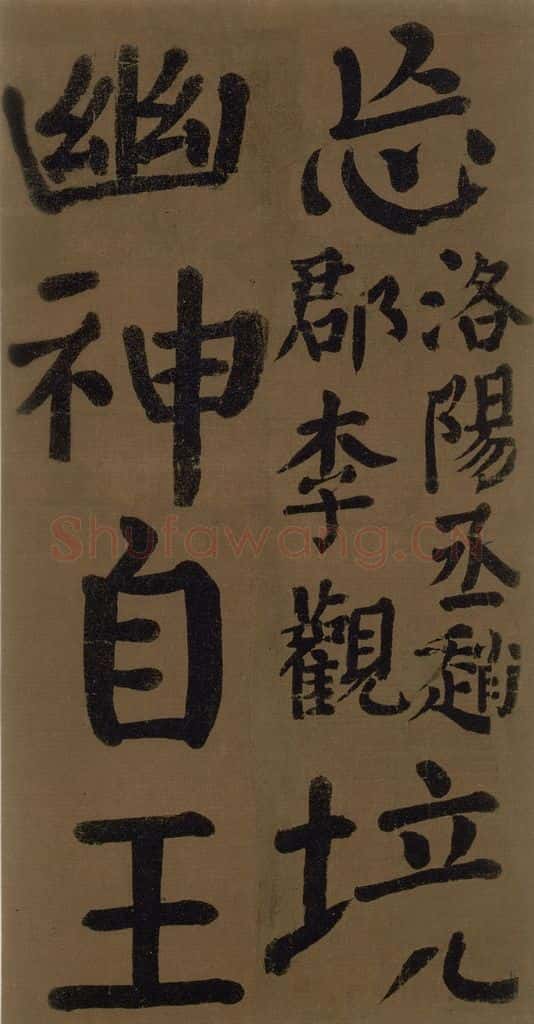 忘
洛陽丞趙
郡李觀
境
幽神自王
Shufawang.cn